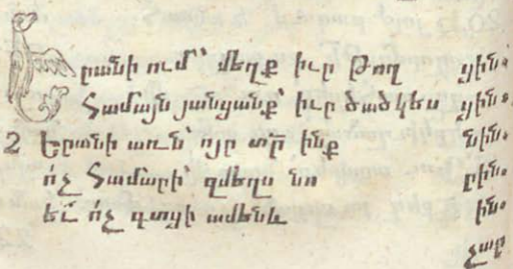 Երանի ում՝ մեղք իւր թող յին։
Համայն յանցանք՝ իւր ծածկես յին։
2 Երանի առն՝ ոյր տր ինք նին։
ոչ համարի՝ զմեղս նո ըին։
եւ ոչ գտցի ամենև ին։
չար